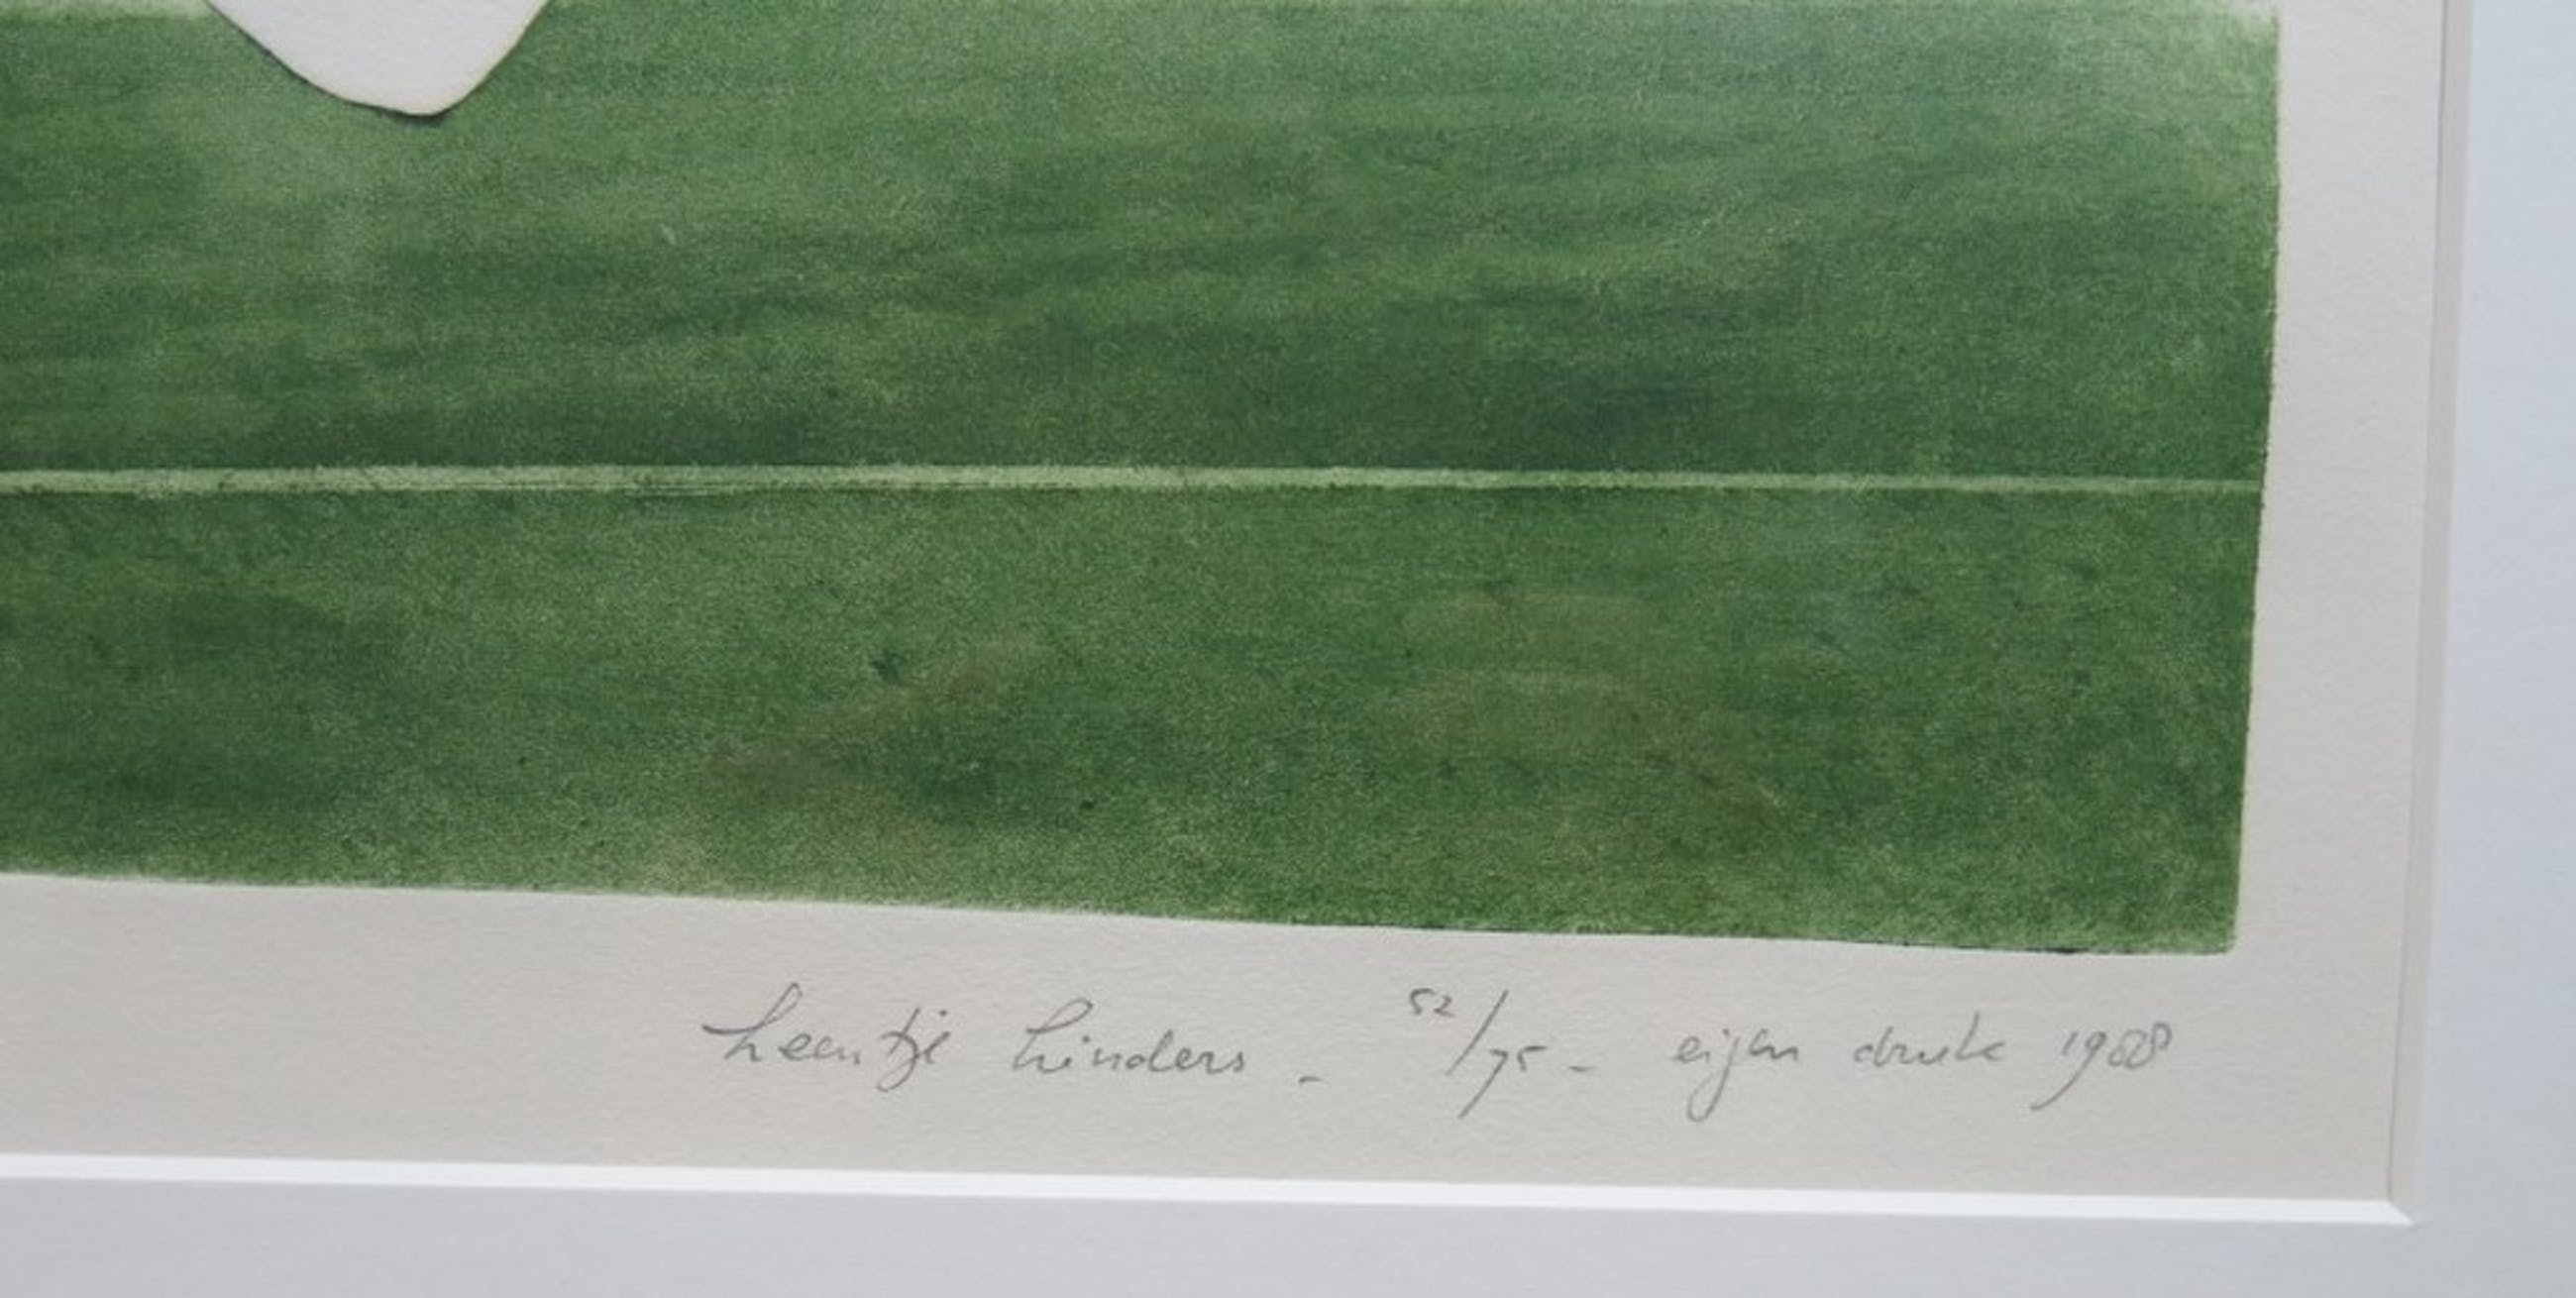 Leentje Linders - 52/75 - eigen druk 1988